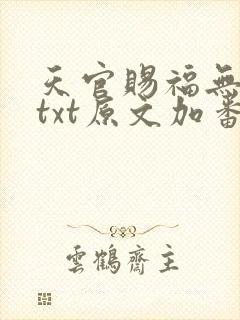 天官賜福無
txt原文加番
雲鶴齋主